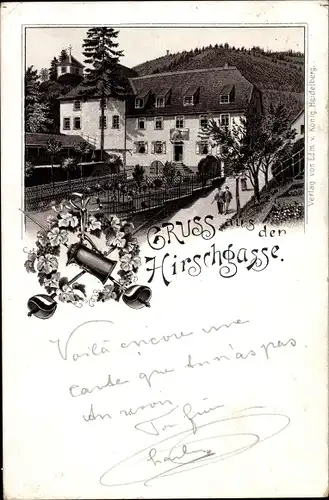 GRUSS aus der
Hirschgasse.
Verlag von Edm. v. König, Heidelberg.
Voilà encore une
carte que tu n'as pas.
Au revoir
Ton